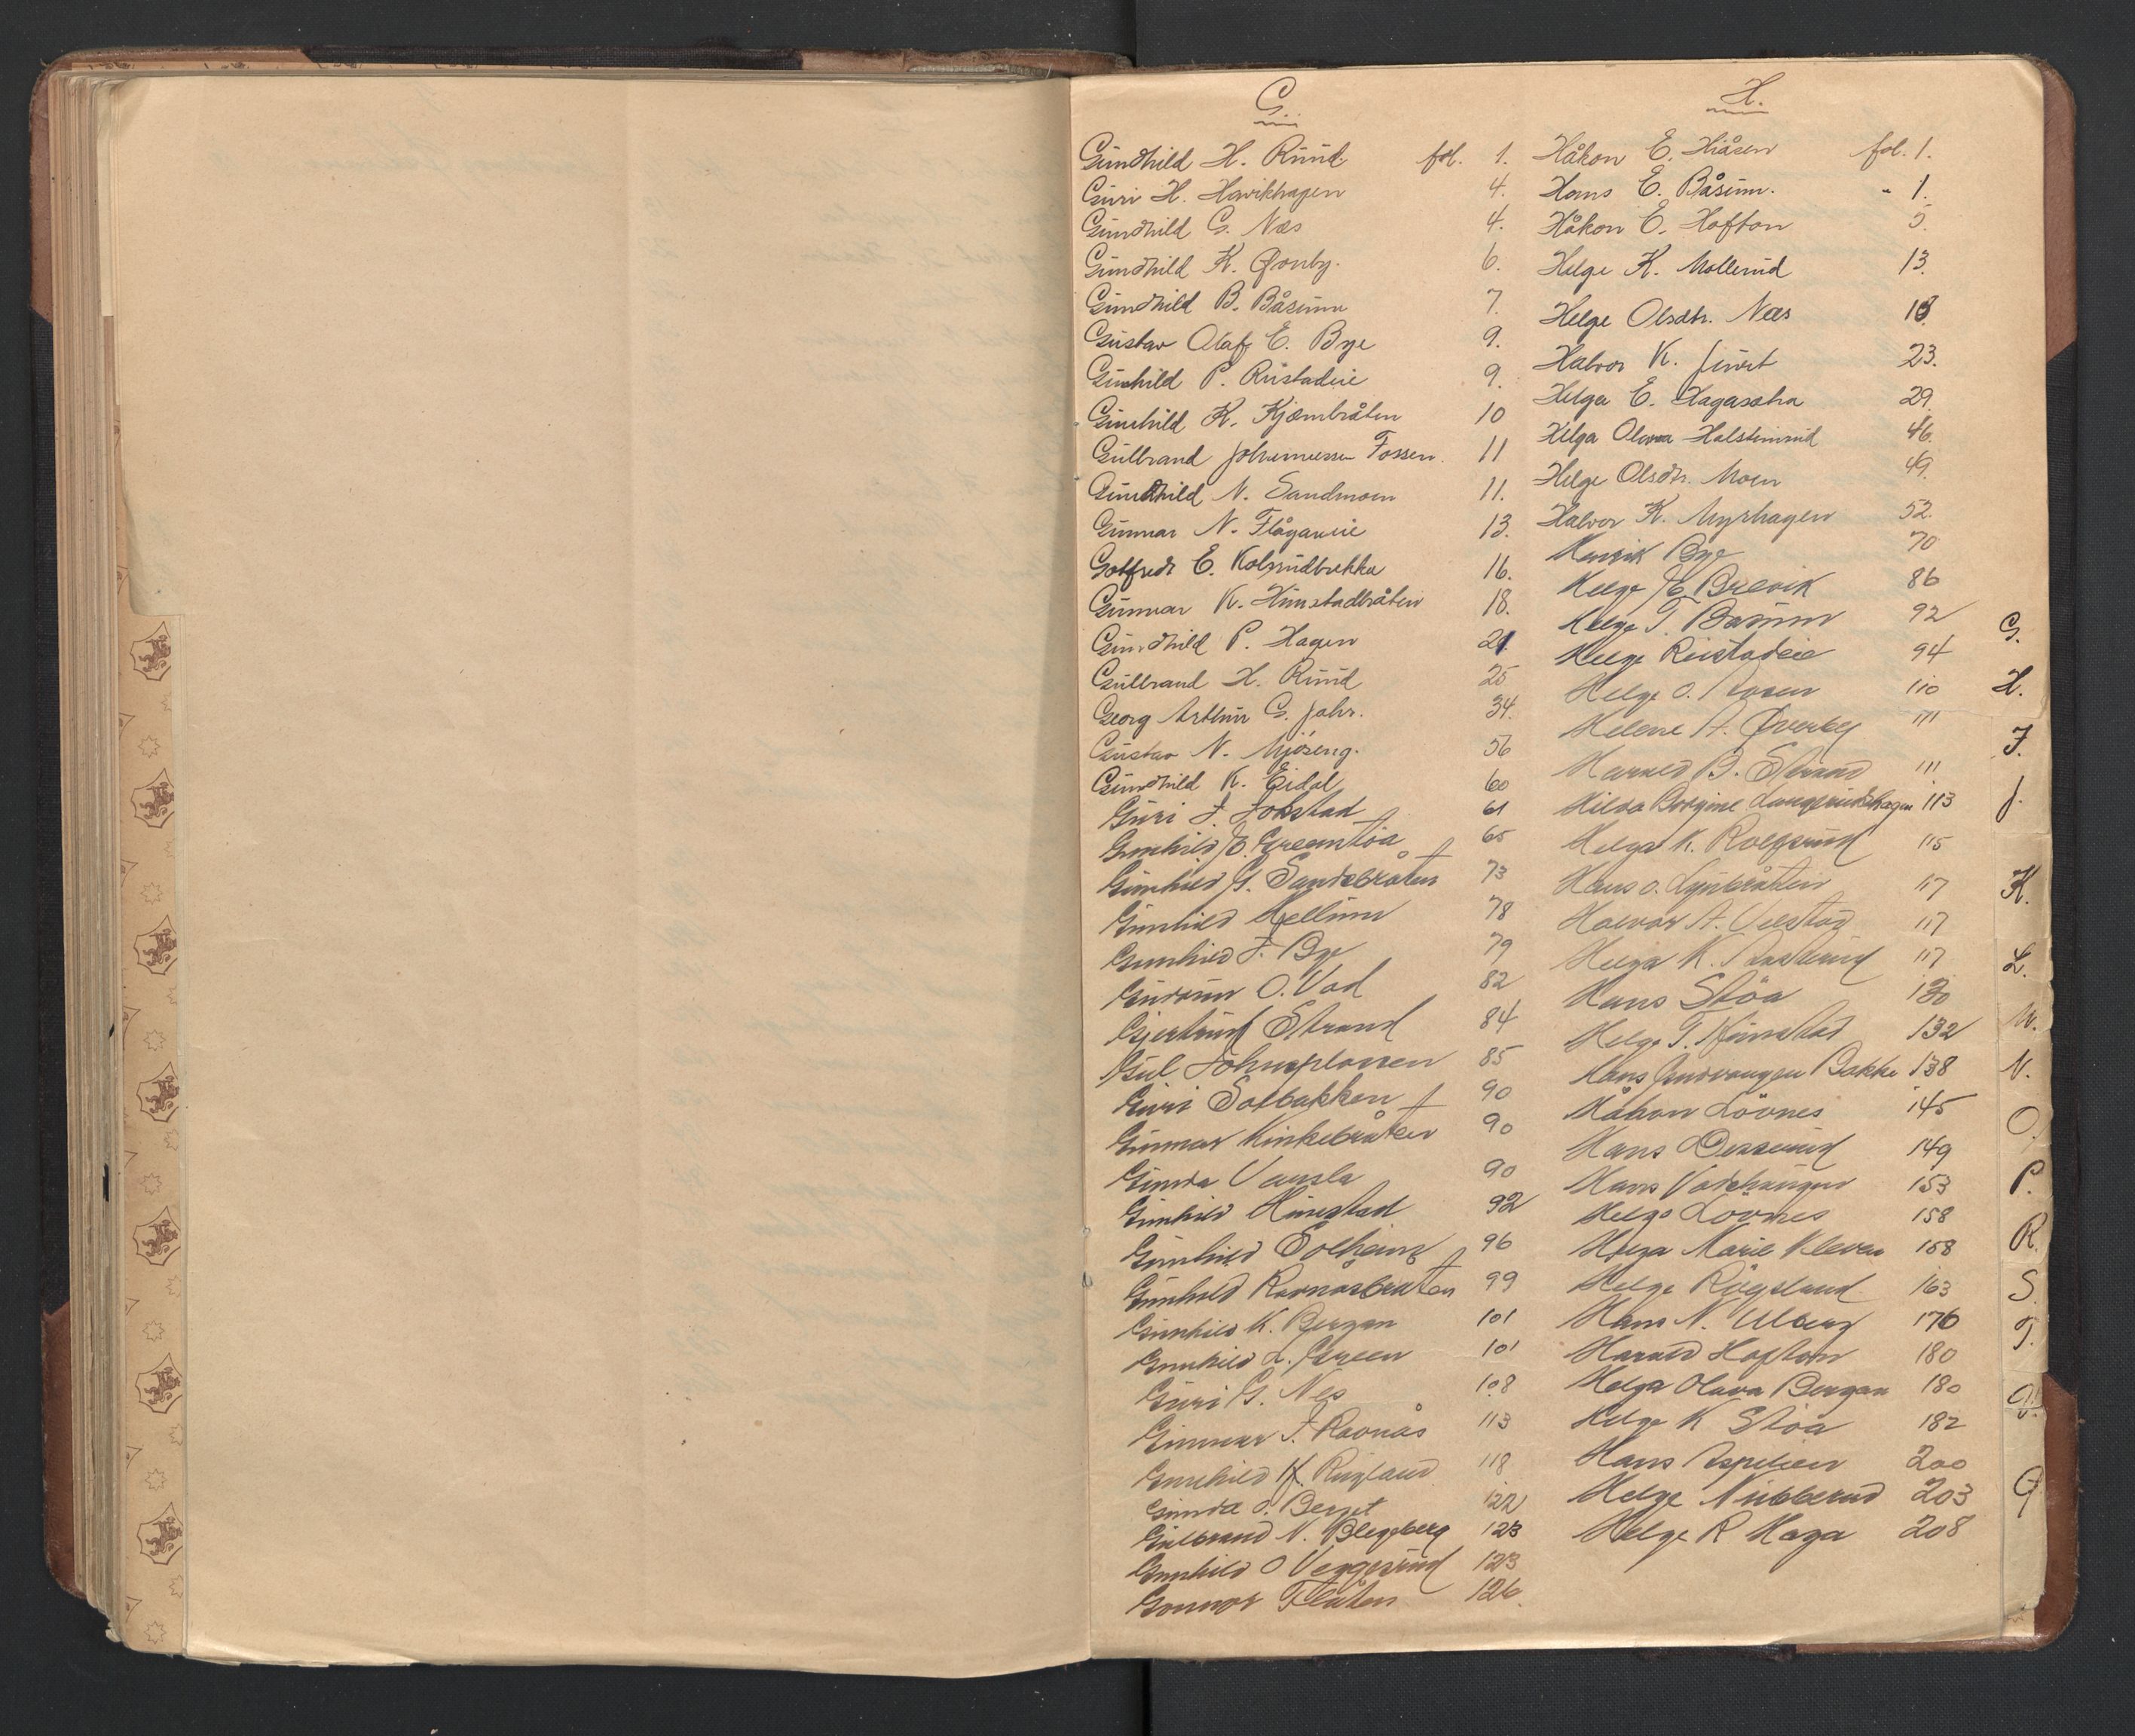 G.
Gundhild H. Ruud. fol. 1.
Guri H. Havikhagen 4.
Gundhild G. Næs 4.
Gundhild K. 6.
Gundhild B. Båsum 7.
Gustav Olaf E. Bye 9.
Gunhild P. Rustadeie 9.
Gunhild K. Kjømbråten 10
Gulbrand Johannessen Fossen. 11
Gundhild N. Sandmoen 11.
Gunnar N. Flåganeie 13.
Gotfredt E. Kolsrudbrekka 16.
Gunnar K. Himstadbråten 18.
Gundhild P. Hagen 21.
Gulbrand H. Ruud 25
Georg Arthur G. Jahr. 34.
Gustav N. Mjöseng. 56
Gundhild K. Eidal 60
Guri J. Jokstad 61
Gunhild E. 65
Gunhild G. Sandsbråten 73
Gunhild 78
Gunhild J. Bye 79
Gudrun O. Vad 82
Gjertrud Strand 84
Gul Johnsplassen 85
Guri Solbakken 90
Gunnar Kinkebråten 90
Gunda 90
Gunhild Himstad 92
Gunhild Solheim 96
Gunhild Ravnåsbråten 99
Gunhild K. Bergan 101
Gunhild L. Green 101
Guri G. Nes 108
Gunnar J. Ravnås 113
Gunhild K. Rugland 118
Gunda O. Berget 122
Gulbrand N. Blegeberg 123
Gunhild O Veggerud 123
Gunnor Flåten 126.
H.
Håkon E. Hiåsen fol. 1.
Hans E. Båsum. " 1.
Håkon E. Hafton 5.
Helge K. Mollerud 13.
Helge Olsdtr. Næs 18.
Halvor K. Juvet 23.
Helga E. Hagasætra 29.
Helga Olava Halstensrud 46.
Helge Olsdtr. Moen 49.
Halvor K. Myrhagen 52.
Henrik Bye 70
Helge E. Brevik 86
Helge T. Båsum 92
Helge Rustadeie 94
Helge O. Rosen 110
Helene A. Överby 111
Harald B. Strand 111
Hilda Borgine 113
Helga K. Rolfsrud 115
Hans O. 117
Halvor A. Ulestad 117
Helga K. 117
Hans Stöa 130
Helge T. Himstad 132
Hans Bakke 138
Håkon Lövnes 145
Hans 149
Hans 153
Helge Lövnes 158
Helga Marie Kleven 158
Helge Rugsland 163
Hans N. Ulberg 176
Harald Hafton 180
Helga Olava Bergan 180
Helge K Stöa 182
Hans Aspelien 200
Helge Nubberud 203
Helge R Haga 208
G.
H.
I.
J.
K.
L.
M.
N.
O.
P.
R.
S.
T.